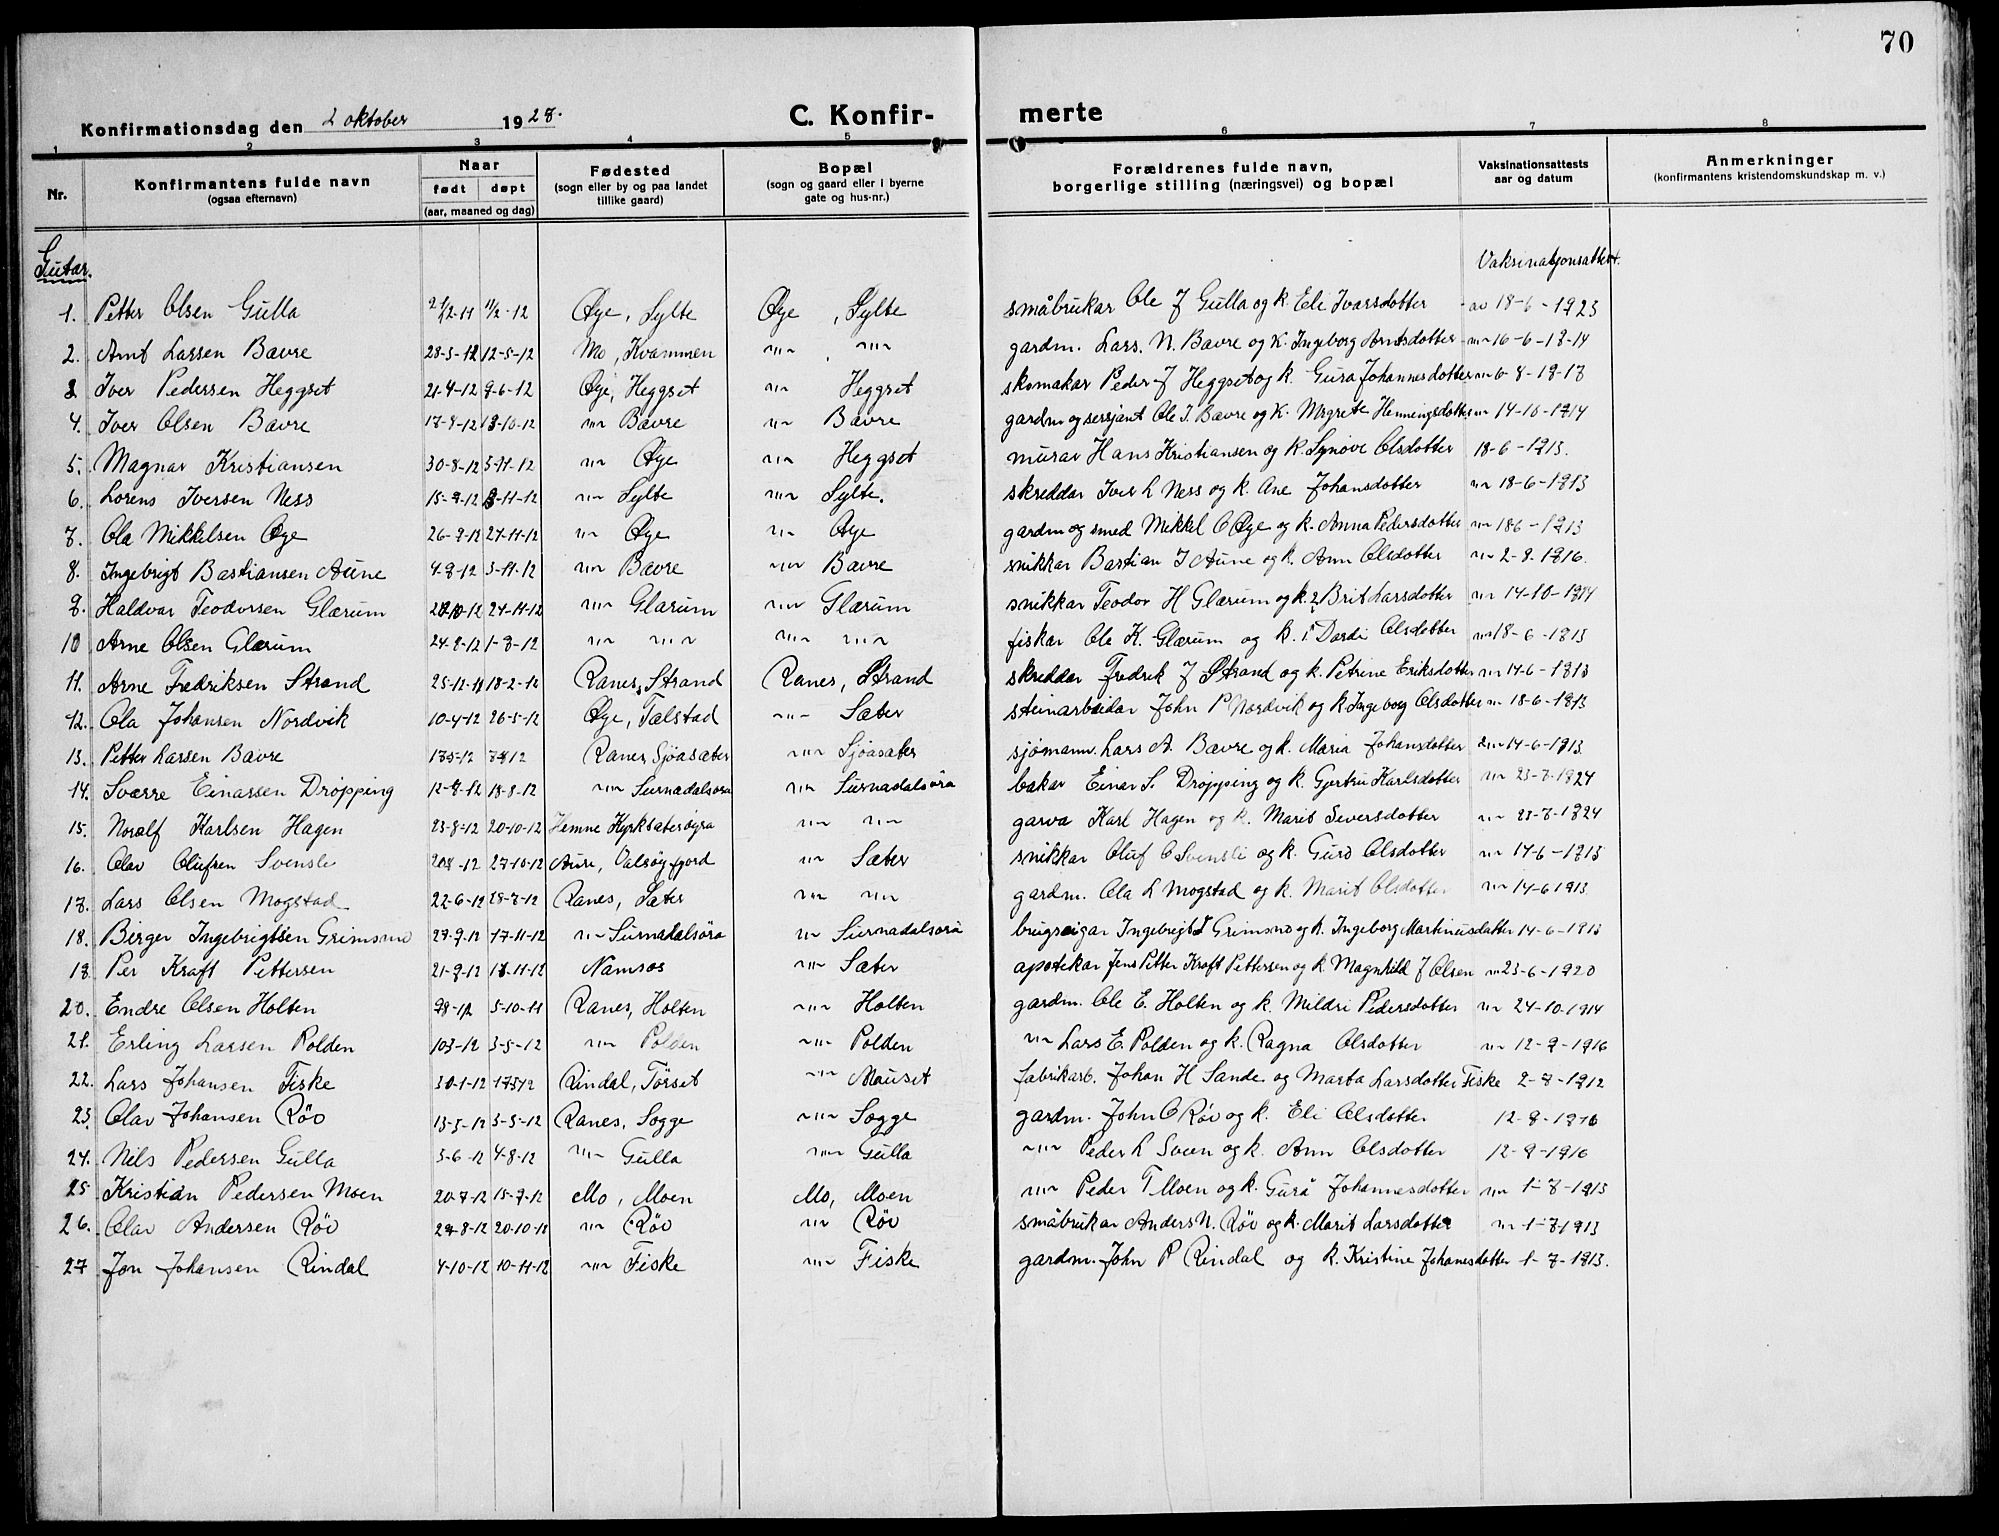 70
Konfirmationsdag den 2 oktober 1928. C. Konfir- merte
1 2 3 4 5 6 7 8
Nr. Konfirmantens fulde navn (ogsaa efternavn) Naar født døpt (aar, maaned og dag) Fødested (sogn eller by og paa landet tillike gaard) Bopæl (sogn og gaard eller i byerne gate og hus-nr.) Forældrenes fulde navn, borgerlige stilling (næringsvei) og bopæl Vaksinationsattests aar og datum Anmerkninger (konfirmantens kristendomskundskap m. v.)
Gutar. Vaksinasjonsattest.
1. Petter Olsen Gulla 2/12-11 11/2-12 Øye, Sylte Øye, Sylte småbrukar Ole J Gulla og k Eli Ivarsdotter av 18-6-1923
2. Arnt Larsen Bævre 28-3-12 12-5-12 Mo, Kvammen -"- , -"- gardm. Lars. N. Bævre og k. Ingeborg Arntsdotter -"- 16-6-1914
3 Iver Pedersen Heggset 21-4-12 9-6-12 Øye, Heggset -"- Heggset skomakar Peder J Heggset og k. Gura Johannesdotter -"- 6-8-1917
4. Iver Olsen Bævre 17-9-12 13-10-12 -"- Bævre -"- Bævre gardm og sersjant Ole I. Bævre og k. Magrete Henningsdotter -"- 14-10-1914
5. Magnar Kristiansen 30-8-12 3-11-12 -"- Øye -"- Heggset murar Hans Kristiansen og k. Synøve Olsdotter 18-6-1913.
6. Lorens Iversen Ness 15-9-12 3-11-12 -"- Sylte -"- Sylte. skreddar Iver L Ness og k. Ane Johansdotter -"- 18-6-1913
7. Ola Mikkelsen Øye 26-9-12 24-11-12 -"- Øye -"- Øye gardm og smed Mikkel O Øye og k. Anna Pedersdotter -"- 18-6-1913
8. Ingebrigt Bastiansen Aune 4-9-12 3-11-12 -"- Bævre -"- Bævre snikkar Bastian I Aune og k. Ann Olsdotter -"- 2-9-1916.
9. Haldvar Teodorsen Glærum 22-10-12 24-11-12 -"- Glærum -"- Glærum snikkar Teodor H Glærum og k. 2 Brit Larsdotter -"- 14-10-1914
10 Arne Olsen Glærum 24-8-12 1-9-12 -"- -"- -"- -"- fiskar Ole K. Glærum og k. i Dardi Olsdotter -"- 18-6-1913
11. Arne Fredriksen Strand 25-12-11 18-2-12 Ranes, Strand Ranes, Strand skreddar Fredrik J Strand og k. Petrine Eriksdotter -"- 14-6-1913
12. Ola Johansen Nordvik 10-4-12 26-5-12 Øye, Talstad -"- Sæter steinarbeidar John P Nordvik og k Ingeborg Olsdotter -"- 18-6-1913
13. Petter Larsen Bævre 17-5-12 7-8-12 Ranes Sjøasæter -"- Sjøasæter sjømann. Lars A. Bævre og k. Maria Johansdotter -"- 14-6-1913
14. Sverre Einarsen Drøpping 12-8-12 18-8-12 -"- Surnadalsøra -"- Surnadalsøra bakar Einar S. Drøpping og k. Gjertru Karlsdotter -"- 23-7-1924
15. Norolf Karlsen Hagen 23-8-12 20-10-12 Hemne Kyrksæterøyra -"- -"- garva Karl Hagen og k. Marit Seversdotter -"- 23-7-1924
16. Olav Olufsen Svensli 20-8-12 27-10-12 Aure, Valsøyfjord -"- Sæter snikkar Oluf O Svensli og k. Guro Olsdotter -"- 14-6-1913
17. Lars Olsen Mogstad 22-6-12 28-7-12 Ranes, Sæter -"- -"- gardm. Ola L Mogstad og k. Marit Olsdotter -"- 14-6 1913
18. Birger Ingebrigtsen Grimsmo 27-9-12 17-11-12 -"- Surnadalsøra -"- Surnadalsøra brugseigar Ingebrigt I Grimsmo og k. Ingeborg Martinusdatter 14-6-1913
19. Per Kraft Pettersen 21-9-12 17-11-12 Namsos -"- Sæter apotekar Jens Petter Kraft Pettersen og k Magnhild J Olsen -"- 23-6-1920
20. Endre Olsen Holten 9-8-12 5-10-11 Ranes, Holten -"- Holten gardm. Ole E. Holten og k. Mildri Pedersdotter -"- 24-10-1914
21. Erling Larsen Polden 10-3-12 3-5-12 -"- Polden -"- Polden -"- Lars E. Polden og k. Ragna Olsdotter -"- 12-9-1916
22. Lars Johansen Fiske 30-1-12 17-5-12 Rindal, Törset -"- Mauset fabrikarb. Johan H Sande og Marta Larsdotter Fiske 2-7-1912
23. Olav Johansen Röv 13-3-12 3-5-12 Ranes, Sogge -"- Sogge gardm. John O Röv og k. Eli Olsdotter 12-9-1916
24. Nils Pedersen Gulla 3-6-12 4-8-12 -"- Gulla -"- Gulla -"- Peder L Sveen og k. Ann Olsdotter 12-9-1916
25 Kristian Pedersen Moen 20-7-12 15-9-12 Mo, Moen Mo, Moen -"- Peder T Moen og k. Gurå Johannesdotter -"- 1-7-1913
26. Olav Andersen Röv 29-8-12 20-10-12 -"- Röv -"- Röv småbrukar Anders N. Röv og k. Marit Larsdotter -"- 1-7-1913
27 Jon Johansen Rindal 4-10-12 10-11-12 -"- Fiske -"- Fiske gardm. John P Rindal og k. Kristine Johanesdotter 1-7-1913.